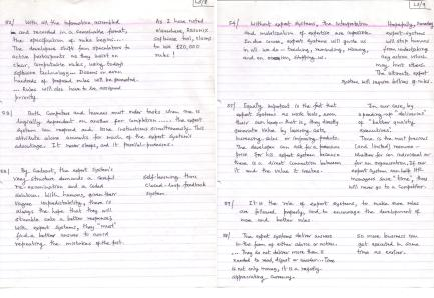 L3/8
52/ With all the information assembled
and recorded in a searchable format,
the specification of rules begins....
The developers shift from spectators to
active participants as they insist on
clear, computable rules, using today's
software technology... Dozens or even
hundreds of proposed rules will be presented.
... Rules will also have to be assigned
priority.
As I have noted
elsewhere,
software tool, claims
to use £20,000
rules!
53/ Both Computers and humans must order tasks when one is
logically dependent on another for completion...... the expert
system can respond and issue instructions simultaneously. This
attribute alone accounts for much of the expert system's
advantage. It never sleeps, and it parallel-processes.
By contrast, the expert system's
very structure demands a careful
re-examination and a coded
solution. With humans, given their
vague unpredictability, there is
always the hope that they will
stumble onto a better response;
with expert systems, they "must"
find a better answer to avoid
repeating the mistakes of the past.
Self-learning thro
closed-loop feedback
system
L3/9
54/ Without expert systems, the interpretation
and installation of expertise are impossible.
In due course, expert systems will guide us
in all we do - teaching, repairing,
and on
Hopefully,
expert systems
will stop humans
from undertaking
any actions which
may hurt others.
The ultimate expert
system will require fullness of rules.
55/ Equally important is the fact that
expert systems do work tasks, even
their own keep - that is, they directly
generate value by lowering costs,
increasing sales or improving products.
The developer can ask for a premium
price for his expert system because
there is a direct connection between
it and the value it creates.
In our case, by
speeding-up "deliveries"
of "better quality
executives".
Time is the most precious
(and limited) resource -
whether for an individual or
for an organisation. If our
expert system can help HR
managers save "time", they
will never go to a competitor.
It is the role of expert systems, to make sure rules
are followed, properly, and, to encourage the development of
new and better rules.
The expert systems deliver answers
in the form of either advice or action.
... They do not deliver more
needed to read, digest or consider... Time
is not only money, it is a rapidly-
appreciating currency.
So more business can
get executed in same
time as earlier.